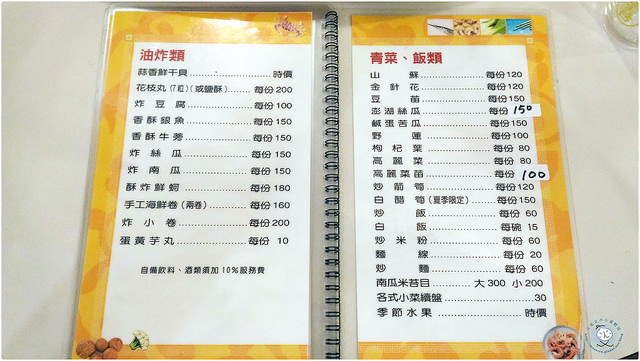 油炸類
蒜香鮮干貝..................時價
花枝丸(7粒)(或鹽酥)..........每份 200
炸豆腐..................每份 100
香酥銀魚..................每份 150
香酥牛蒡..................每份 150
炸絲瓜..................每份 150
炸南瓜..................每份 150
酥炸鮮蚵..................每份 180
手工海鮮卷(兩卷)..........每份 160
炸小卷..................每份 200
蛋黃芋丸..................每份 10
自備飲料、酒類須加10%服務費
青菜、飯類
山蘇..................每份 120
金針花..................每份 120
豆苗..................每份 150
澎湖絲瓜..................每份 150
鹹蛋苦瓜..................每份 150
野蓮..................每份 100
枸杞葉..................每份 80
高麗菜..................每份 80
高麗菜苗..................每份 100
炒箭筍..................每份 120
白醋筍(夏季限定)..........每份 150
炒飯..................每份 60
白飯..................每碗 15
炒米粉..................每份 60
麵線..................每份 20
炒麵..................每份 60
南瓜米苔目..........大300 小200
各式小菜續盤..................30
季節水果..................時價